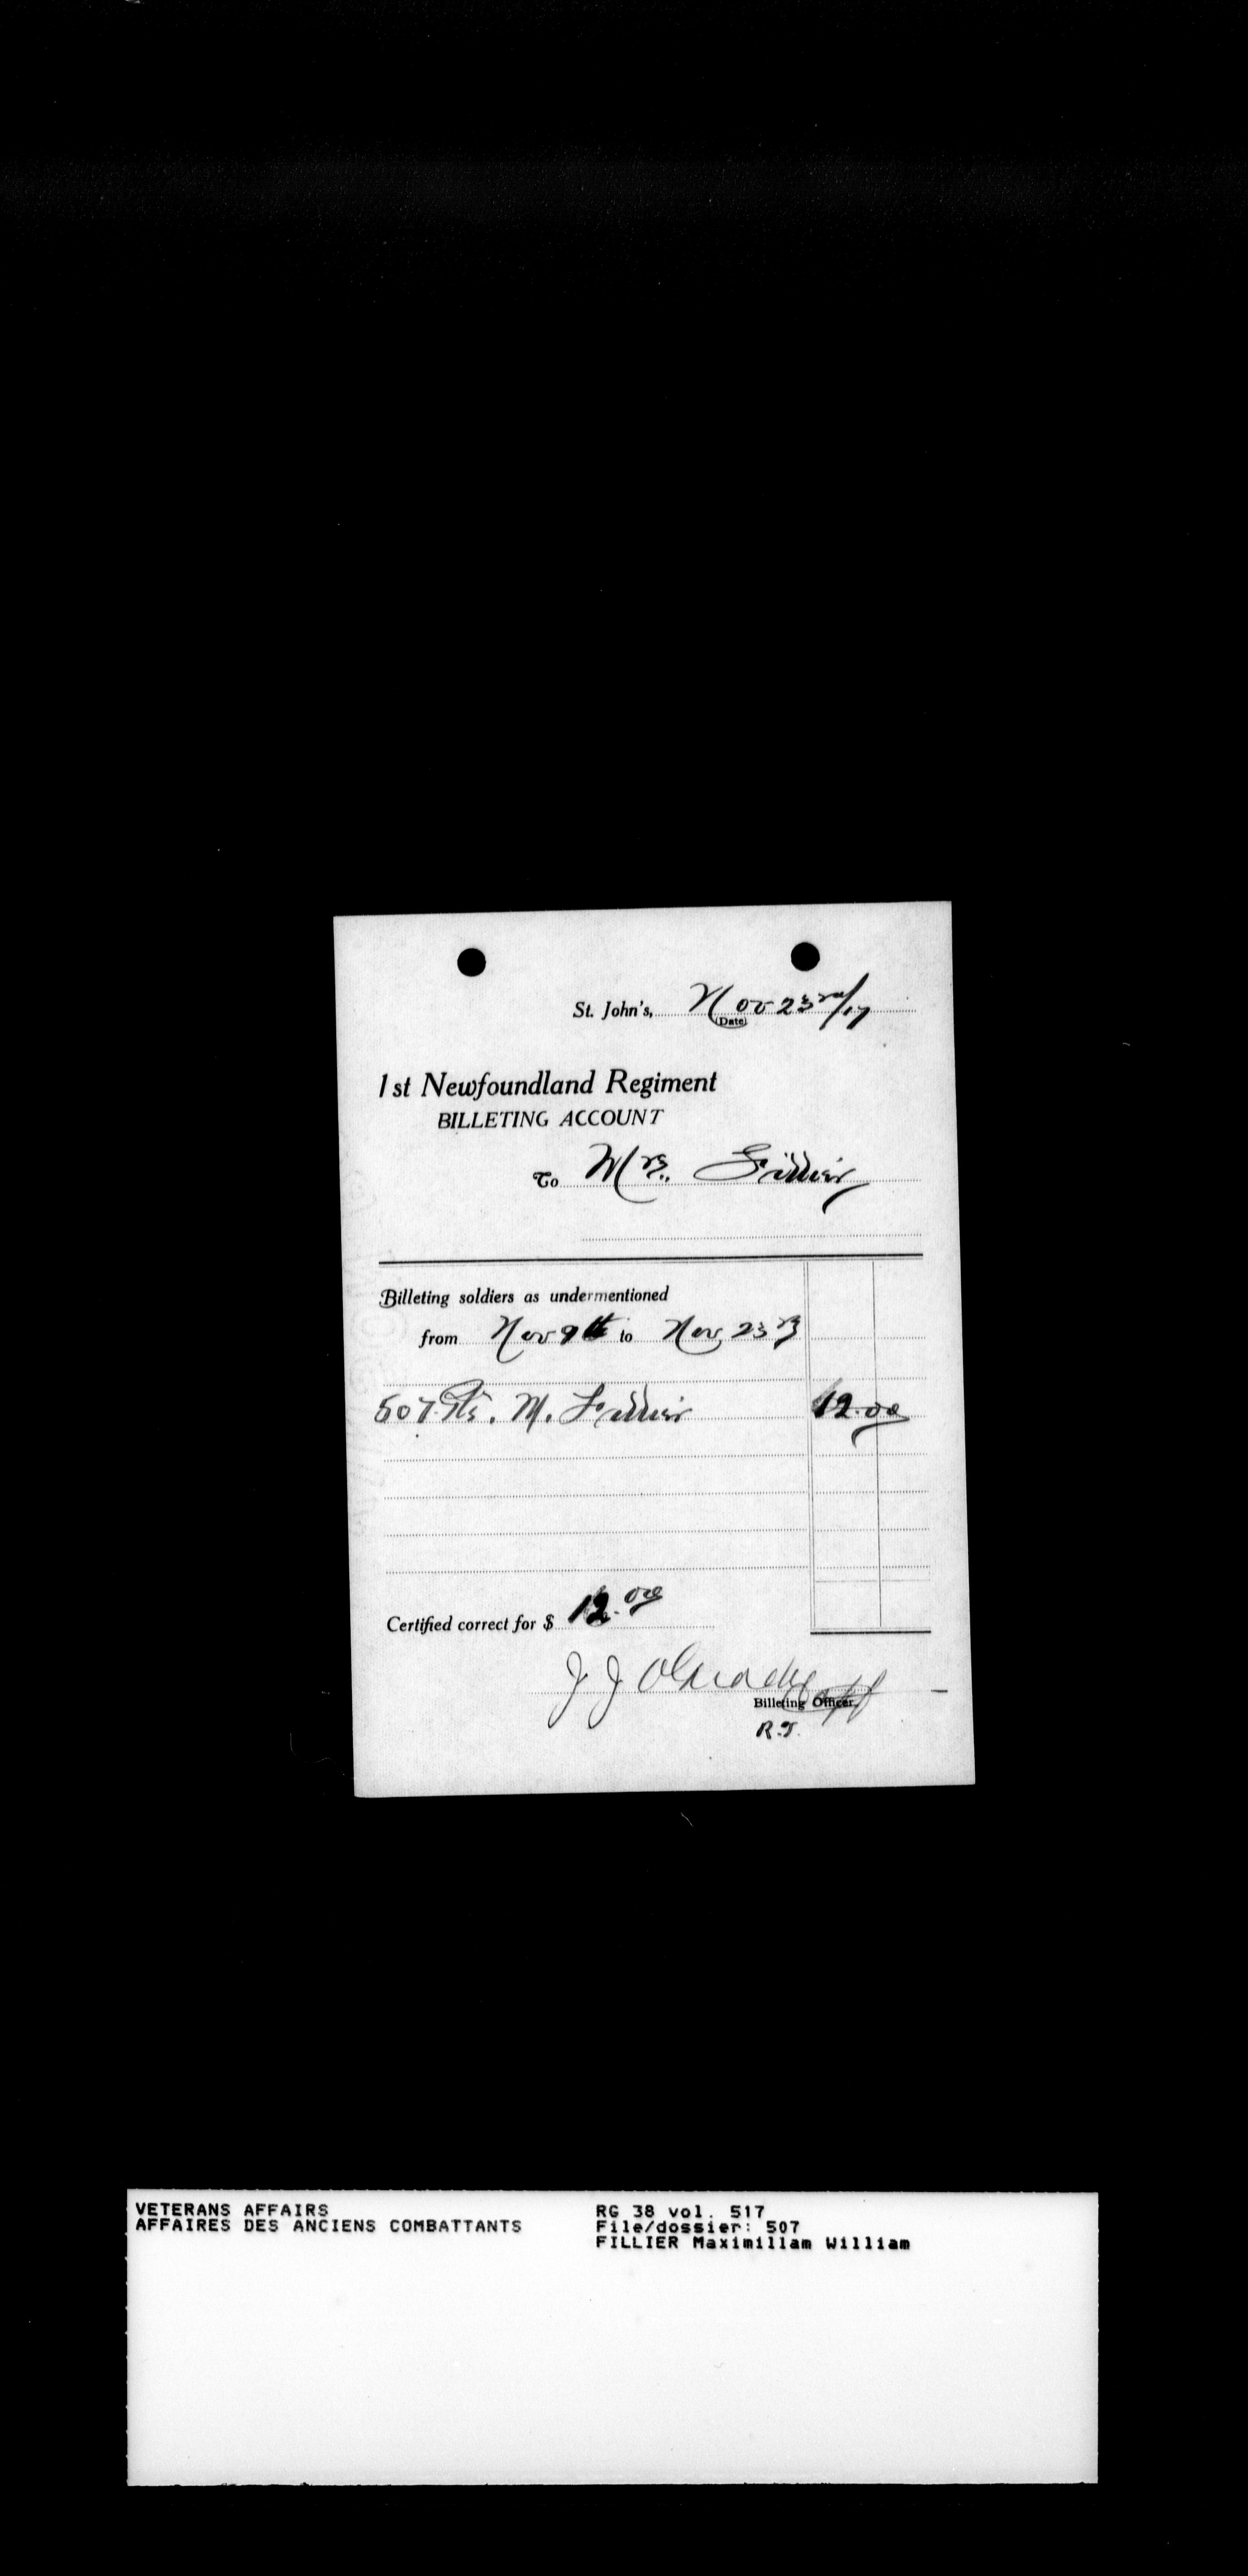 St. John's, Nov 23rd/17
(Date)
1st Newfoundland Regiment
BILLETING ACCOUNT
To Mrs. Fillier
Billeting soldiers as undermentioned
from Nov 9th to Nov 23rd
507 Pte. M. Fillier 12.00
Certified correct for $ 12.00
J J O'Grady
Billeting Officer
R.J.
VETERANS AFFAIRS
AFFAIRES DES ANCIENS COMBATTANTS
RG 38 vol. 517
File/dossier: 507
FILLIER Maximillam William